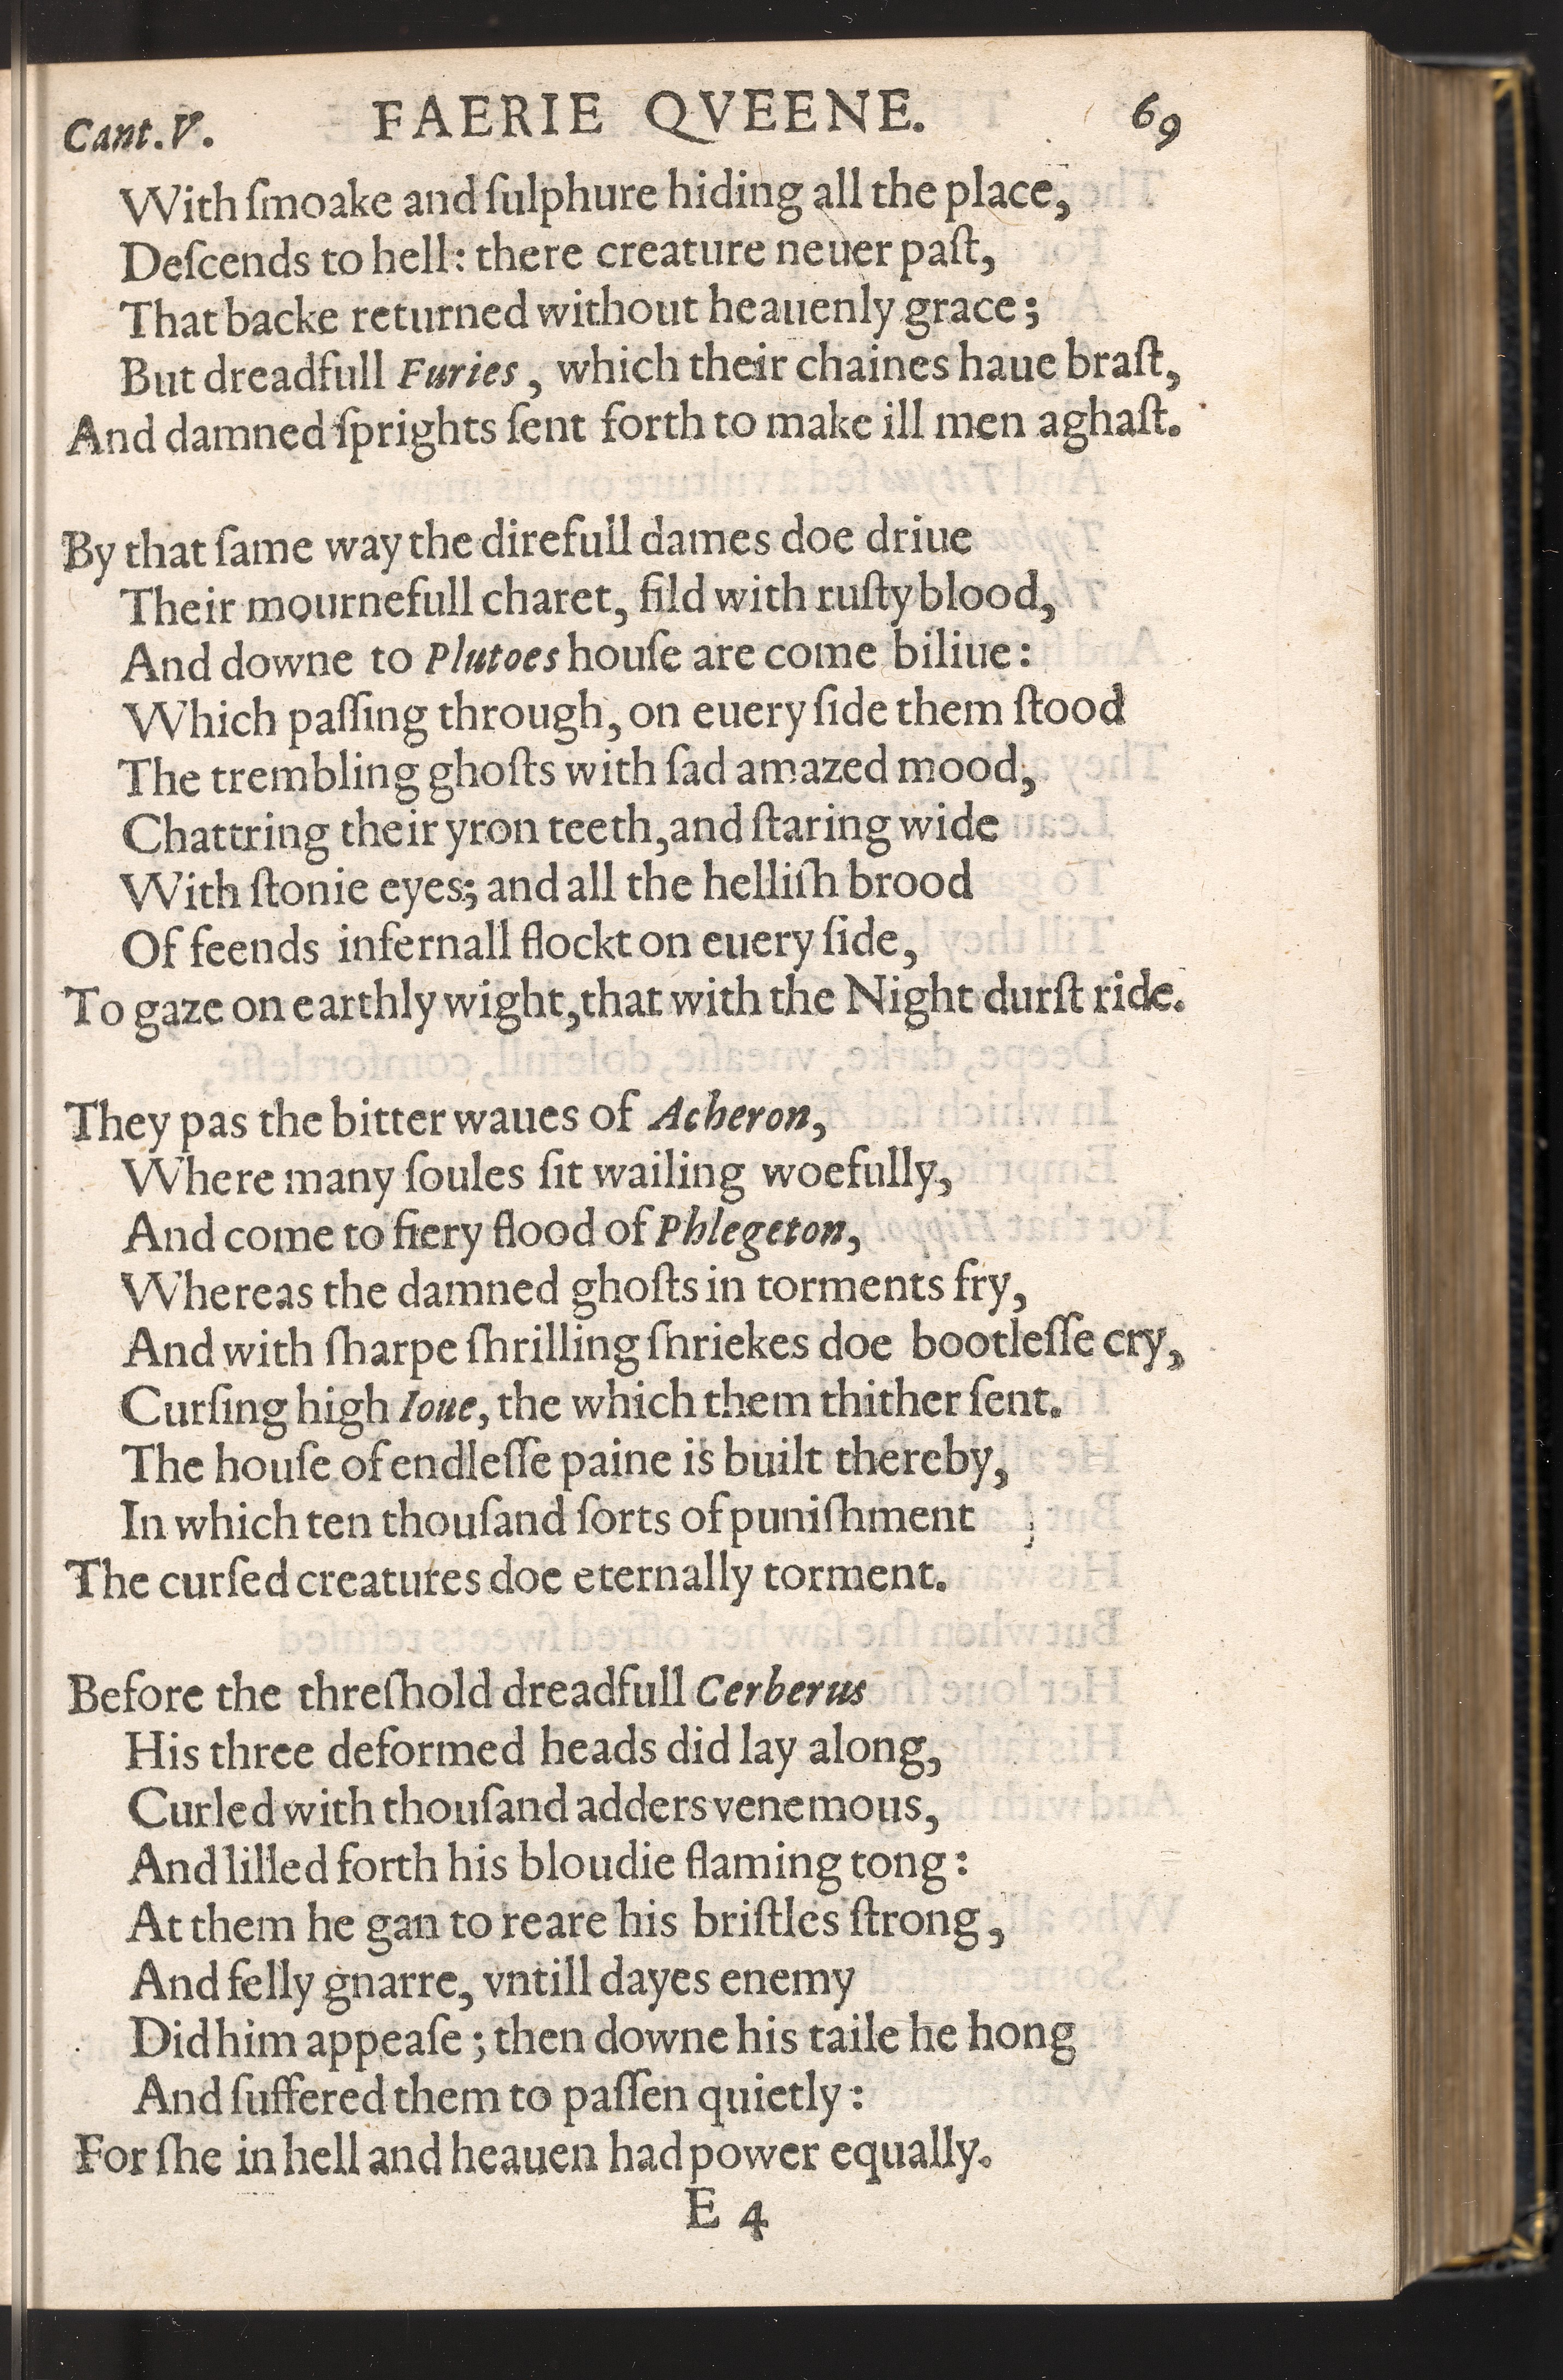 Cant.V. FAERIE QVEENE. 69
With ſmoake and ſulphure hiding all the place,
Deſcends to hell: there creature neuer paſt,
That backe returned without heauenly grace;
But dreadfull Furies, which their chaines haue braſt,
And damned ſprights ſent forth to make ill men aghaſt.
By that ſame way the direfull dames doe driue
Their mournefull charet, fild with ruſty blood,
And downe to Plutoes houſe are come biliue:
Which paſſing through, on euery ſide them ſtood
The trembling ghoſts with ſad amazed mood,
Chattring their yron teeth, and ſtaring wide
With ſtonie eyes; and all the helliſh brood
Of feends infernall flockt on euery ſide,
To gaze on earthly wight, that with the Night durſt ride.
They pas the bitter waues of Acheron,
Where many ſoules ſit wailing woefully,
And come to fiery flood of Phlegeton,
Whereas the damned ghoſts in torments fry,
And with ſharpe ſhrilling ſhriekes doe bootleſſe cry,
Curſing high Ioue, the which them thither ſent.
The houſe of endleſſe paine is built thereby,
In which ten thouſand ſorts of puniſhment
The curſed creatures doe eternally torment.
Before the threſhold dreadfull Cerberus
His three deformed heads did lay along,
Curled with thouſand adders venemous,
And lilled forth his bloudie flaming tong:
At them he gan to reare his briſtles ſtrong,
And felly gnarre, vntill dayes enemy
Did him appeaſe; then downe his taile he hong
And ſuffered them to paſſen quietly:
For ſhe in hell and heauen had power equally.
E 4